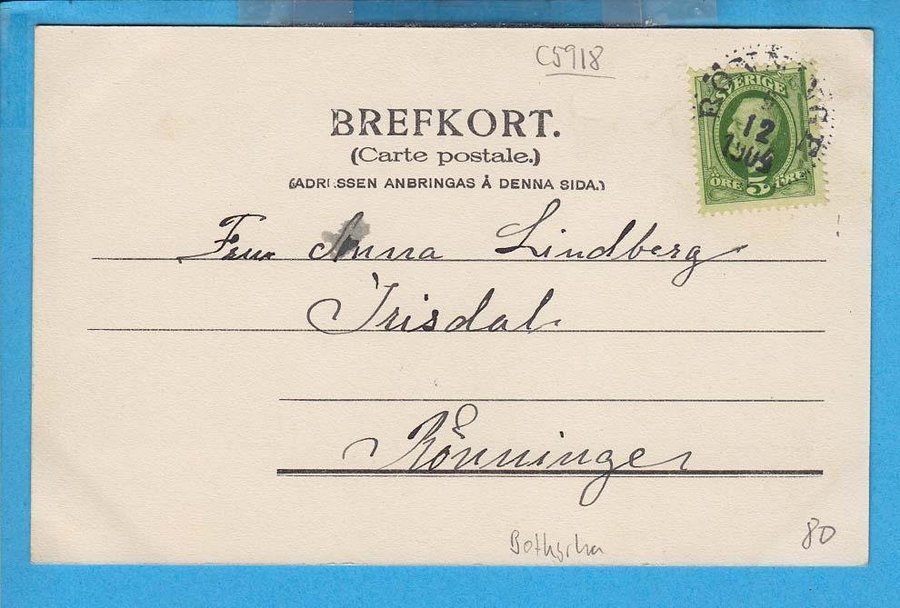 C5918
SVERIGE
RÖNNINGE
12
1903
ÖRE 5 ÖRE
BREFKORT.
(Carte postale.)
(ADRESSEN ANBRINGAS Å DENNA SIDA.)
Fru Anna Lindberg
Irisdal
Rönninge
Botkyrka
80